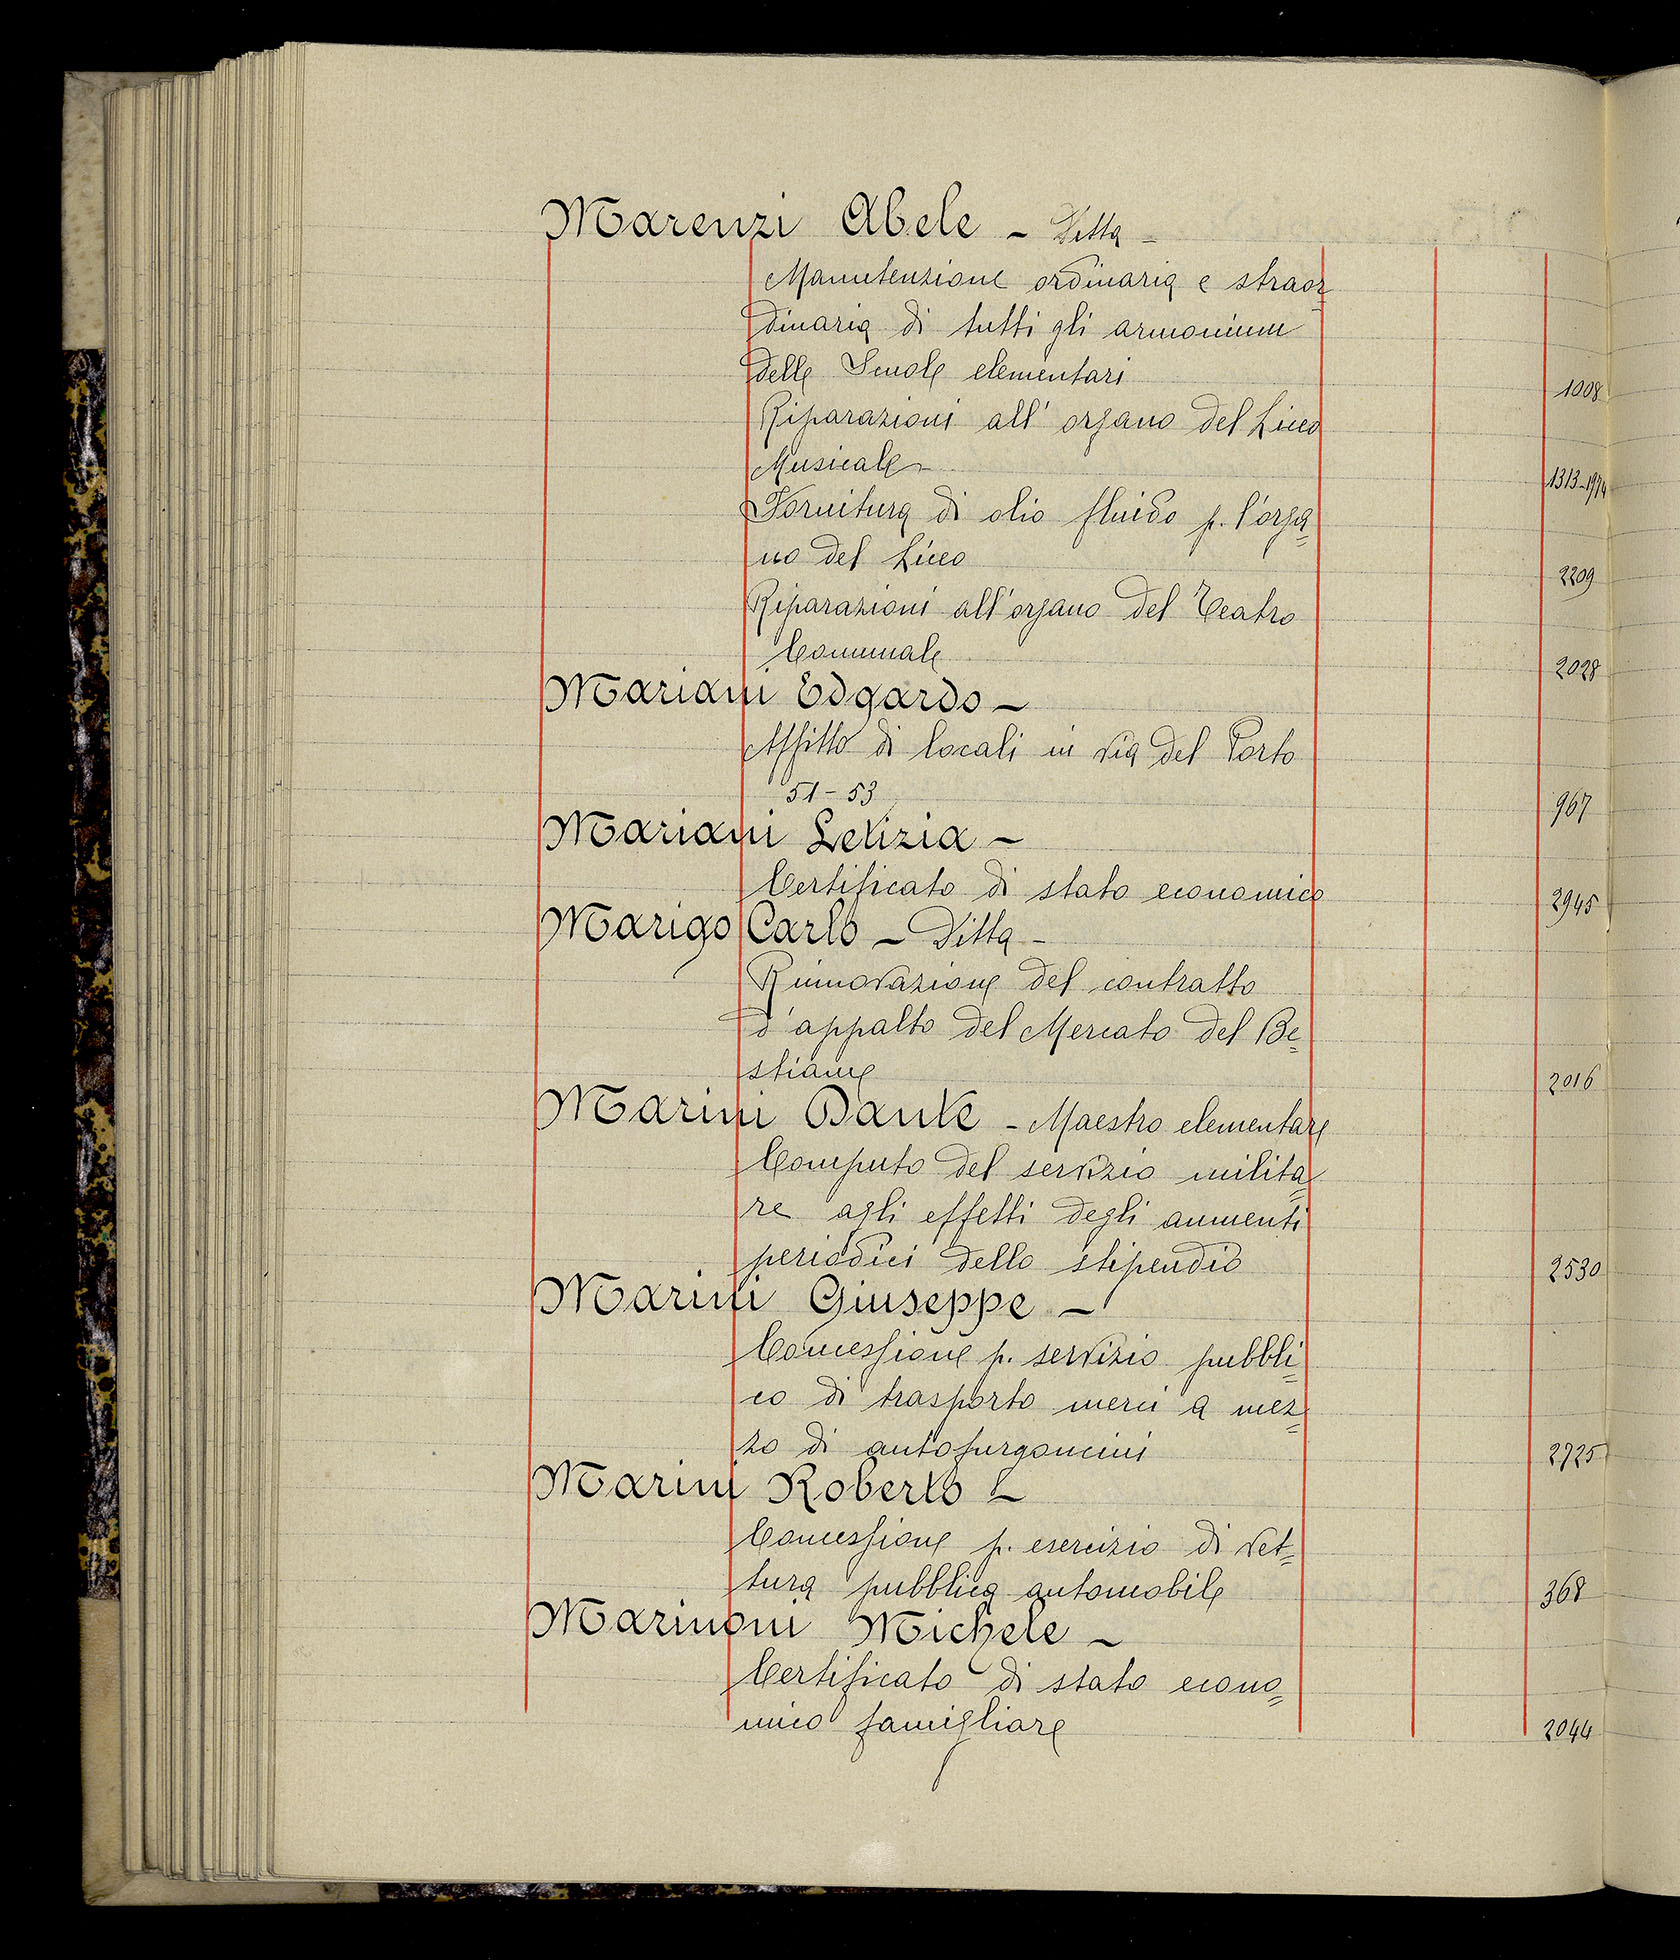 Marenzi Abele - Ditta -
Manutenzione ordinaria e straor=
dinaria di tutti gli armonium
delle Scuole elementari 1008
Riparazioni all' organo del Liceo
Musicale - 1313-1974
Fornitura di olio fluido p. l'orga=
no del Liceo 2209
Riparazioni all'organo del Teatro
Comunale 2028
Mariani Edgardo -
Affitto di locali in via del Porto
51-53 967
Mariani Letizia -
Certificato di stato economico 2945
Marigo Carlo - Ditta -
Rinnovazione del contratto
d'appalto del Mercato del Be=
stiame 2016
Marini Dante - Maestro elementare
Computo del servizio milita=
re agli effetti degli aumenti
periodici dello stipendio 2530
Marini Giuseppe -
Concessione p. servizio pubbli=
co di trasporto merci a mez=
zo di autofurgoncini 2725
Marini Roberto -
Concessione p. esercizio di vet=
tura pubblica automobile 368
Marinoni Michele -
Certificato di stato econo=
mico famigliare 2044